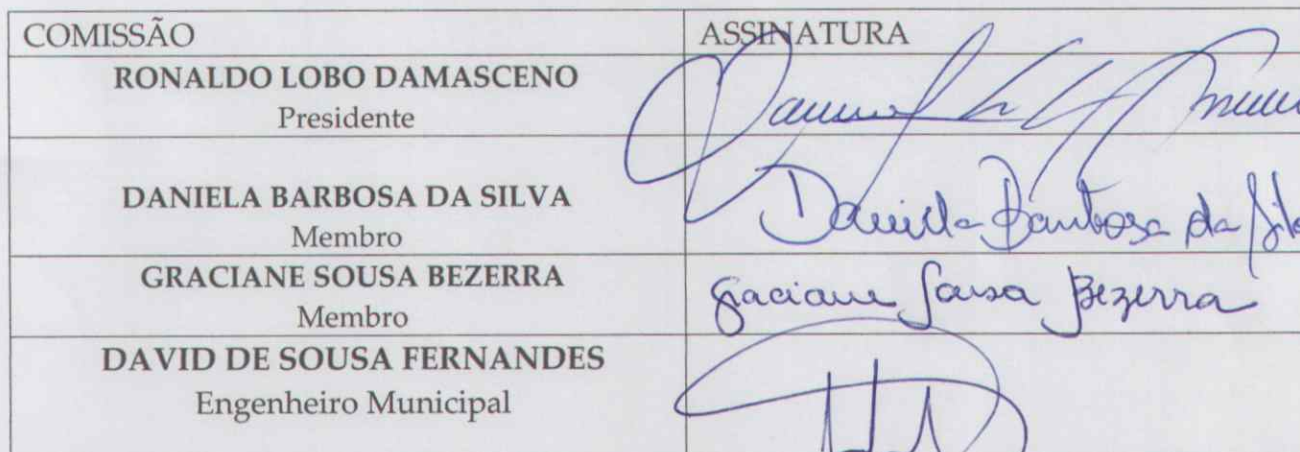 COMISSÃO ASSINATURA
RONALDO LOBO DAMASCENO
Presidente
DANIELA BARBOSA DA SILVA Daniela Barbosa da Silva
Membro
GRACIANE SOUSA BEZERRA Graciane Sousa Bezerra
Membro
DAVID DE SOUSA FERNANDES
Engenheiro Municipal